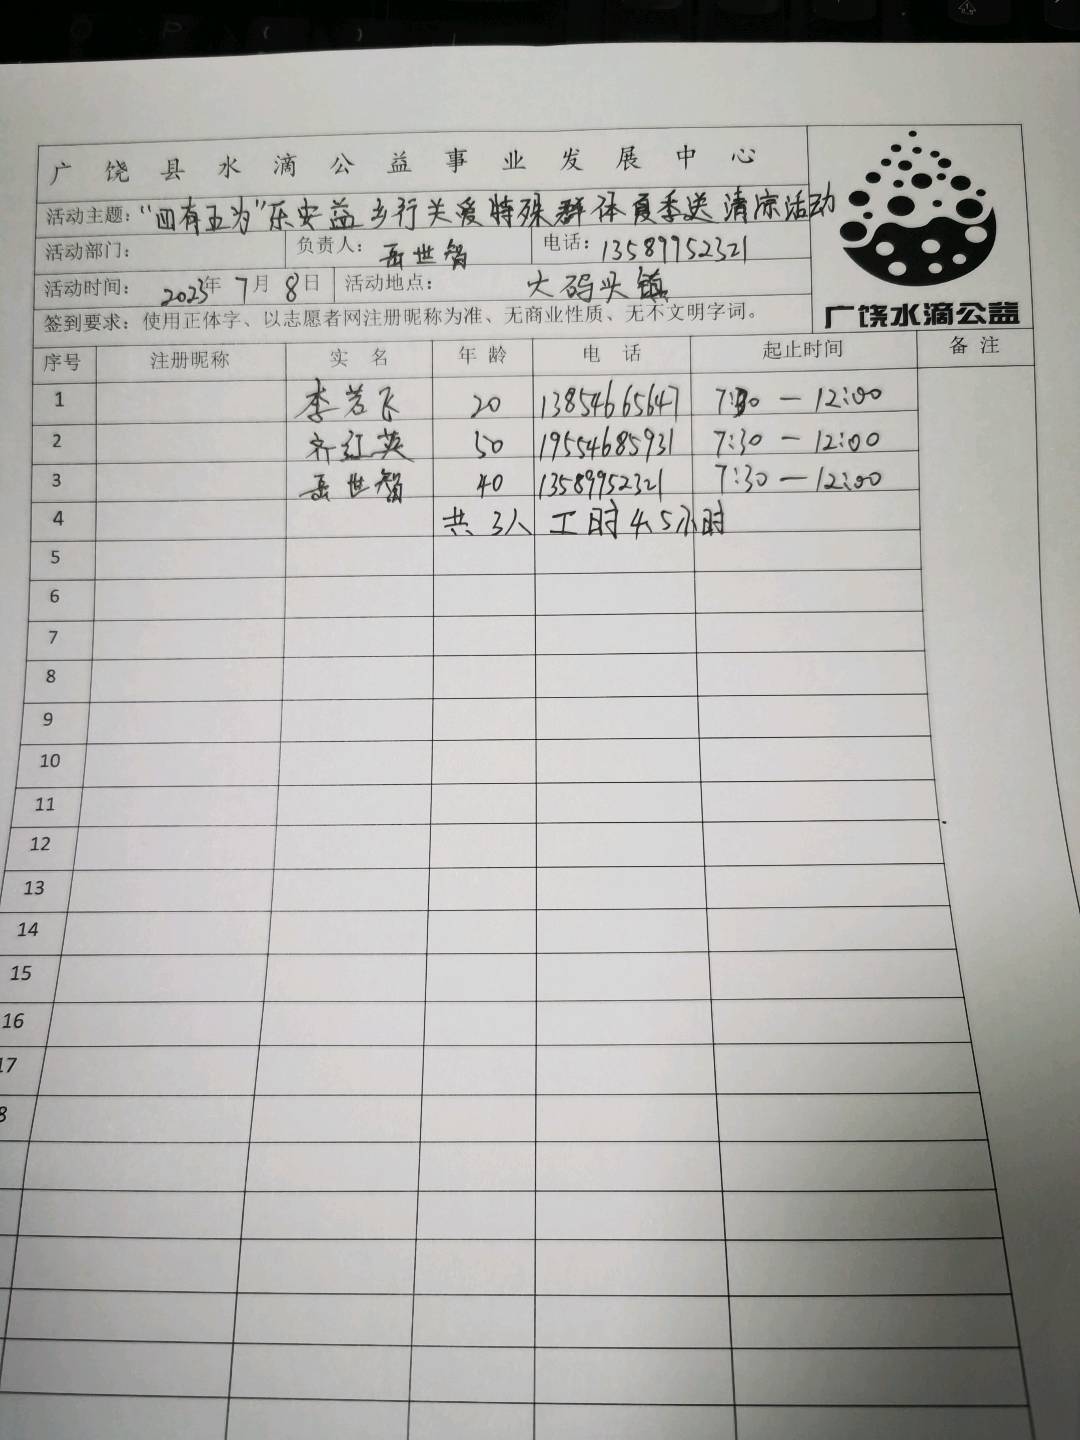 广饶县水滴公益事业发展中心
活动主题：“四有五为”乐安益乡行关爱特殊群体夏季送清凉活动
活动部门： 负责人：岳世智 电话：13589952321
活动时间：2023年7月8日 活动地点：大码头镇
签到要求：使用正体字、以志愿者网注册昵称为准、无商业性质、无不文明字词。
广饶水滴公益
序号 注册昵称 实名 年龄 电话 起止时间 备注
1 李若飞 20 13854665647 7:30－12:00
2 齐红英 50 19554685931 7:30－12:00
3 岳世智 40 13589952321 7:30－12:00
4 共3人 工时4.5小时
5
6
7
8
9
10
11
12
13
14
15
16
17
8